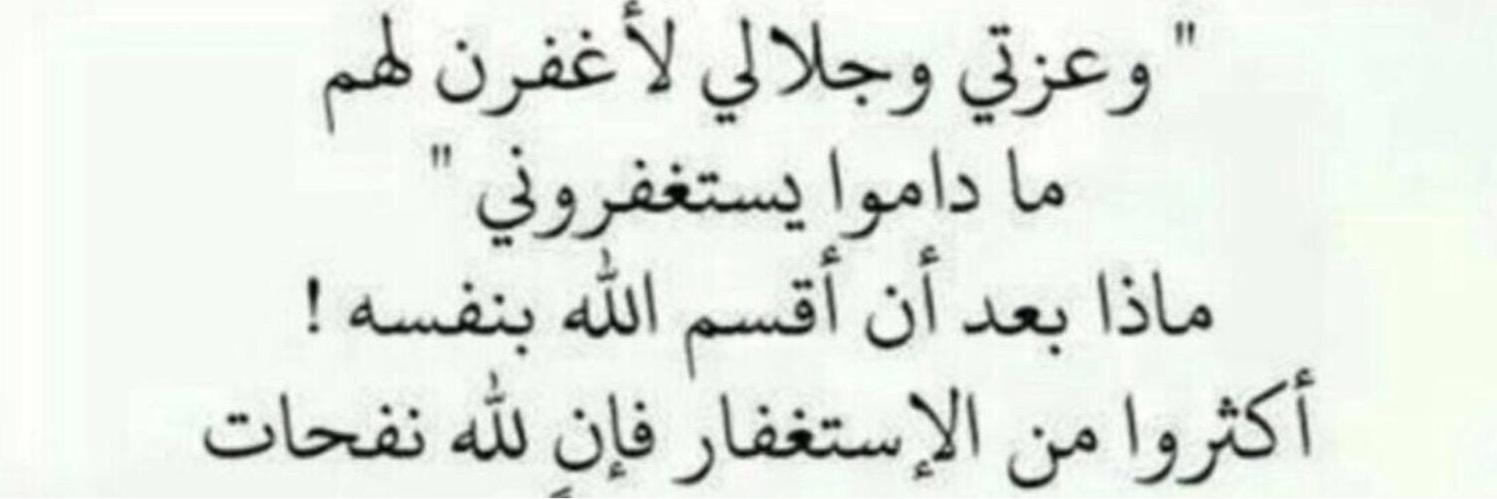 " وعزتي وجلالي لأغفرن لهم
ما داموا يستغفروني "
ماذا بعد أن أقسم الله بنفسه !
أكثروا من الإستغفار فإن لله نفحات